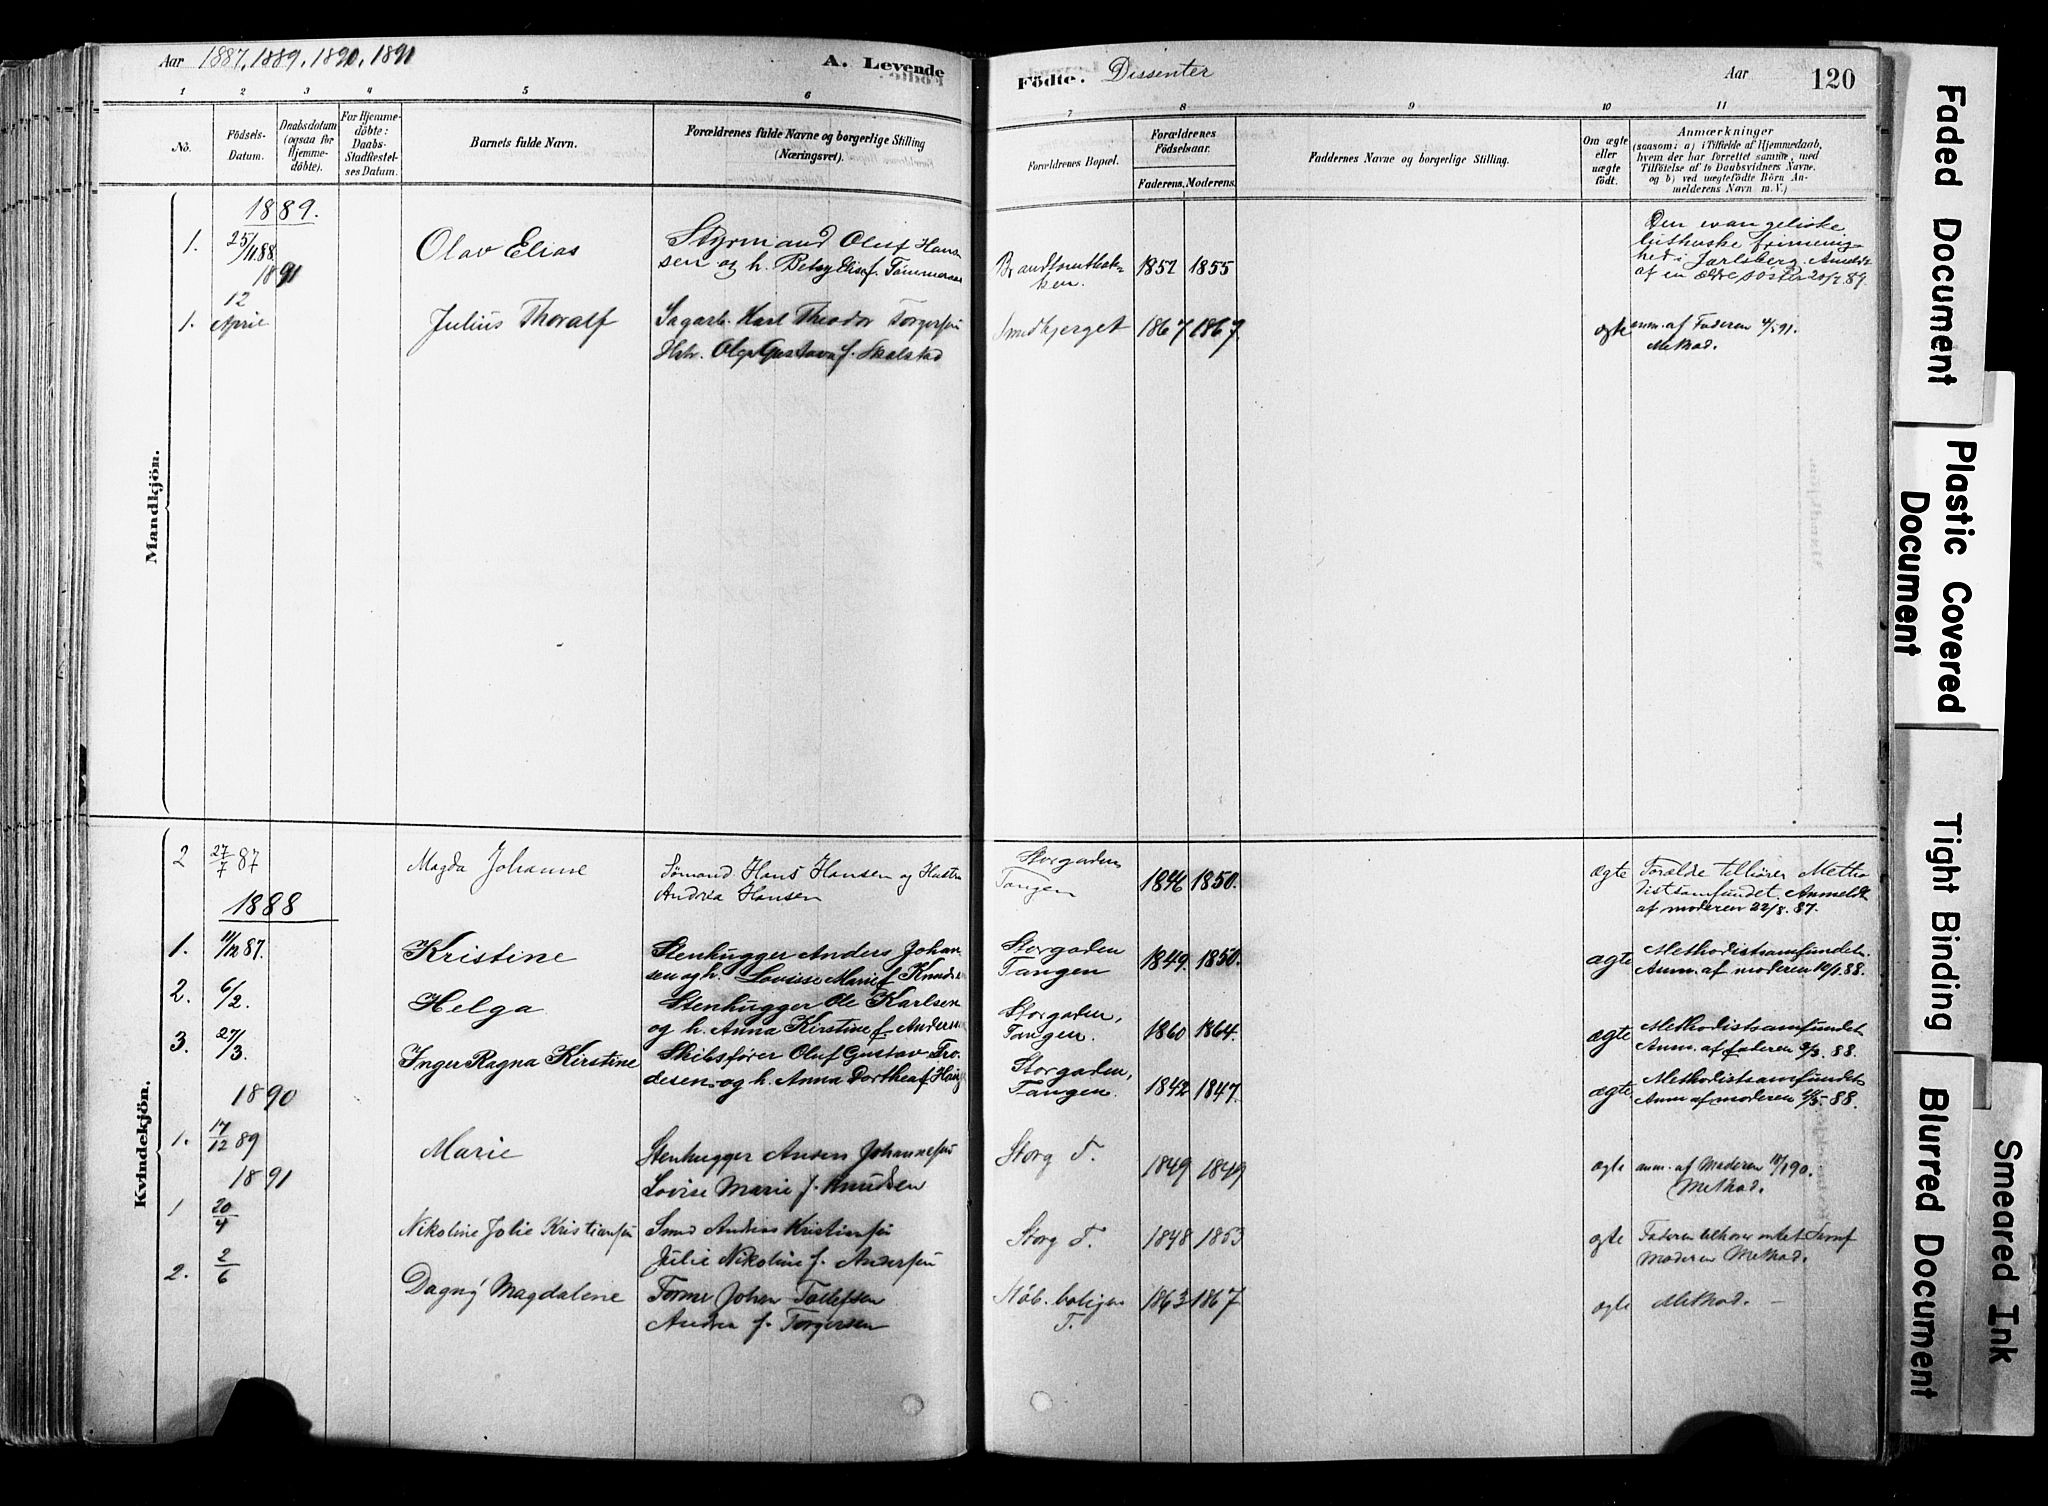 Aar 1887, 1889, 1890, 1891
A. Levende
Födte. Dissenter
Aar 120
1 2 3 4 5 6 7 8 9 10 11
No.
Födsels-
Datum.
Daabsdatum
(ogsaa for
Hjemme-
döbte).
For Hjemme-
döbte:
Daabs-
Stadfæstel-
ses Datum.
Barnets fulde Navn.
Forældrenes fulde Navne og borgerlige Stilling
(Næringsvei).
Forældrenes Bopæl.
Forældrenes
Födselsaar.
Faderens. Moderens.
Faddernes Navne og borgerlige Stilling.
Om ægte
eller
uægte
födt.
Anmærkninger
(saasom: a) i Tilfælde af Hjemmedaab,
hvem der har forrettet samme, med
Tilföielse af to Daabsvidners Navne.
og b) ved uægtefödte Börn An-
melderens Navn m. V.)
Mandkjön.
1889.
1. 25/11 88. Olav Elias Styrmand Oluf Han-
sen og h. Betsy Elise f. 1852 1855
Den evangeliske
lutherske frimenig-
hed i Jarlsberg. Anmeldt
af en ældre søster 20/2 89.
1891
1. 12 April Julius Thoralf Sagarb. Karl Theodor Torgersen
Hstr. Olga Gustava f. Skalstad
Smedbjerget 1867 1867. ægte anm. af Faderen 4/5 91.
Method.
Kvindekjön.
2 27/7 87 Magda Johanne Sømand Hans Hansen og Hustru
Andrea Hansen
Storgaden
Tangen 1846 1850. ægte Forældre tilhører Metho
distsamfundet. Anmeldt
af moderen 22/8. 87.
1888
1. 11/12 87. Kristine Stenhugger Anders Johan-
sen og h. Lovise Marie f. Knudsen
Storgaden
Tangen 1849. 1850. ægte Methodistsamfundet.
Anm. af moderen 10/1 88.
2. 6/2. Helga Stenhugger Ole Karlsen
og h. Anna Kirstine f. Andersen
Storgaden,
Tangen. 1860 1864. ægte Methodistsamfundet
Anm. af faderen 3/3. 88.
3. 27/3. Inger Ragna Kirstine Skibsfører Oluf Gustav Fro-
desen og h. Anna Dorthea f.
Storgaden,
Tangen. 1842 1847. ægte Methodistsamfundet
Anm af moderen 88.
1890
1. 17/12 89 Marie Stenhugger Anders Johannesen
Lovise Marie f. Knudsen
Storg T. 1849 1849 ægte anm. af Moderen 90.
Methad.
1891
1 20/4 Nikoline Jolie Kristiansen Smed Anders Kristiansen
Julie Nikoline f. Andersen
Storg T. 1848 1853 ægte Faderen tilhører intet Samf
moderen Methad.
2. 2/6 Dagny Magdalene Former Johan Tollefsen
Andrea f. Torgersen
Støb. boliger
T. 1863 1867 ægte Methad. —
Faded Document
Plastic Covered
Document
Tight Binding
Blurred Document
Smeared Ink